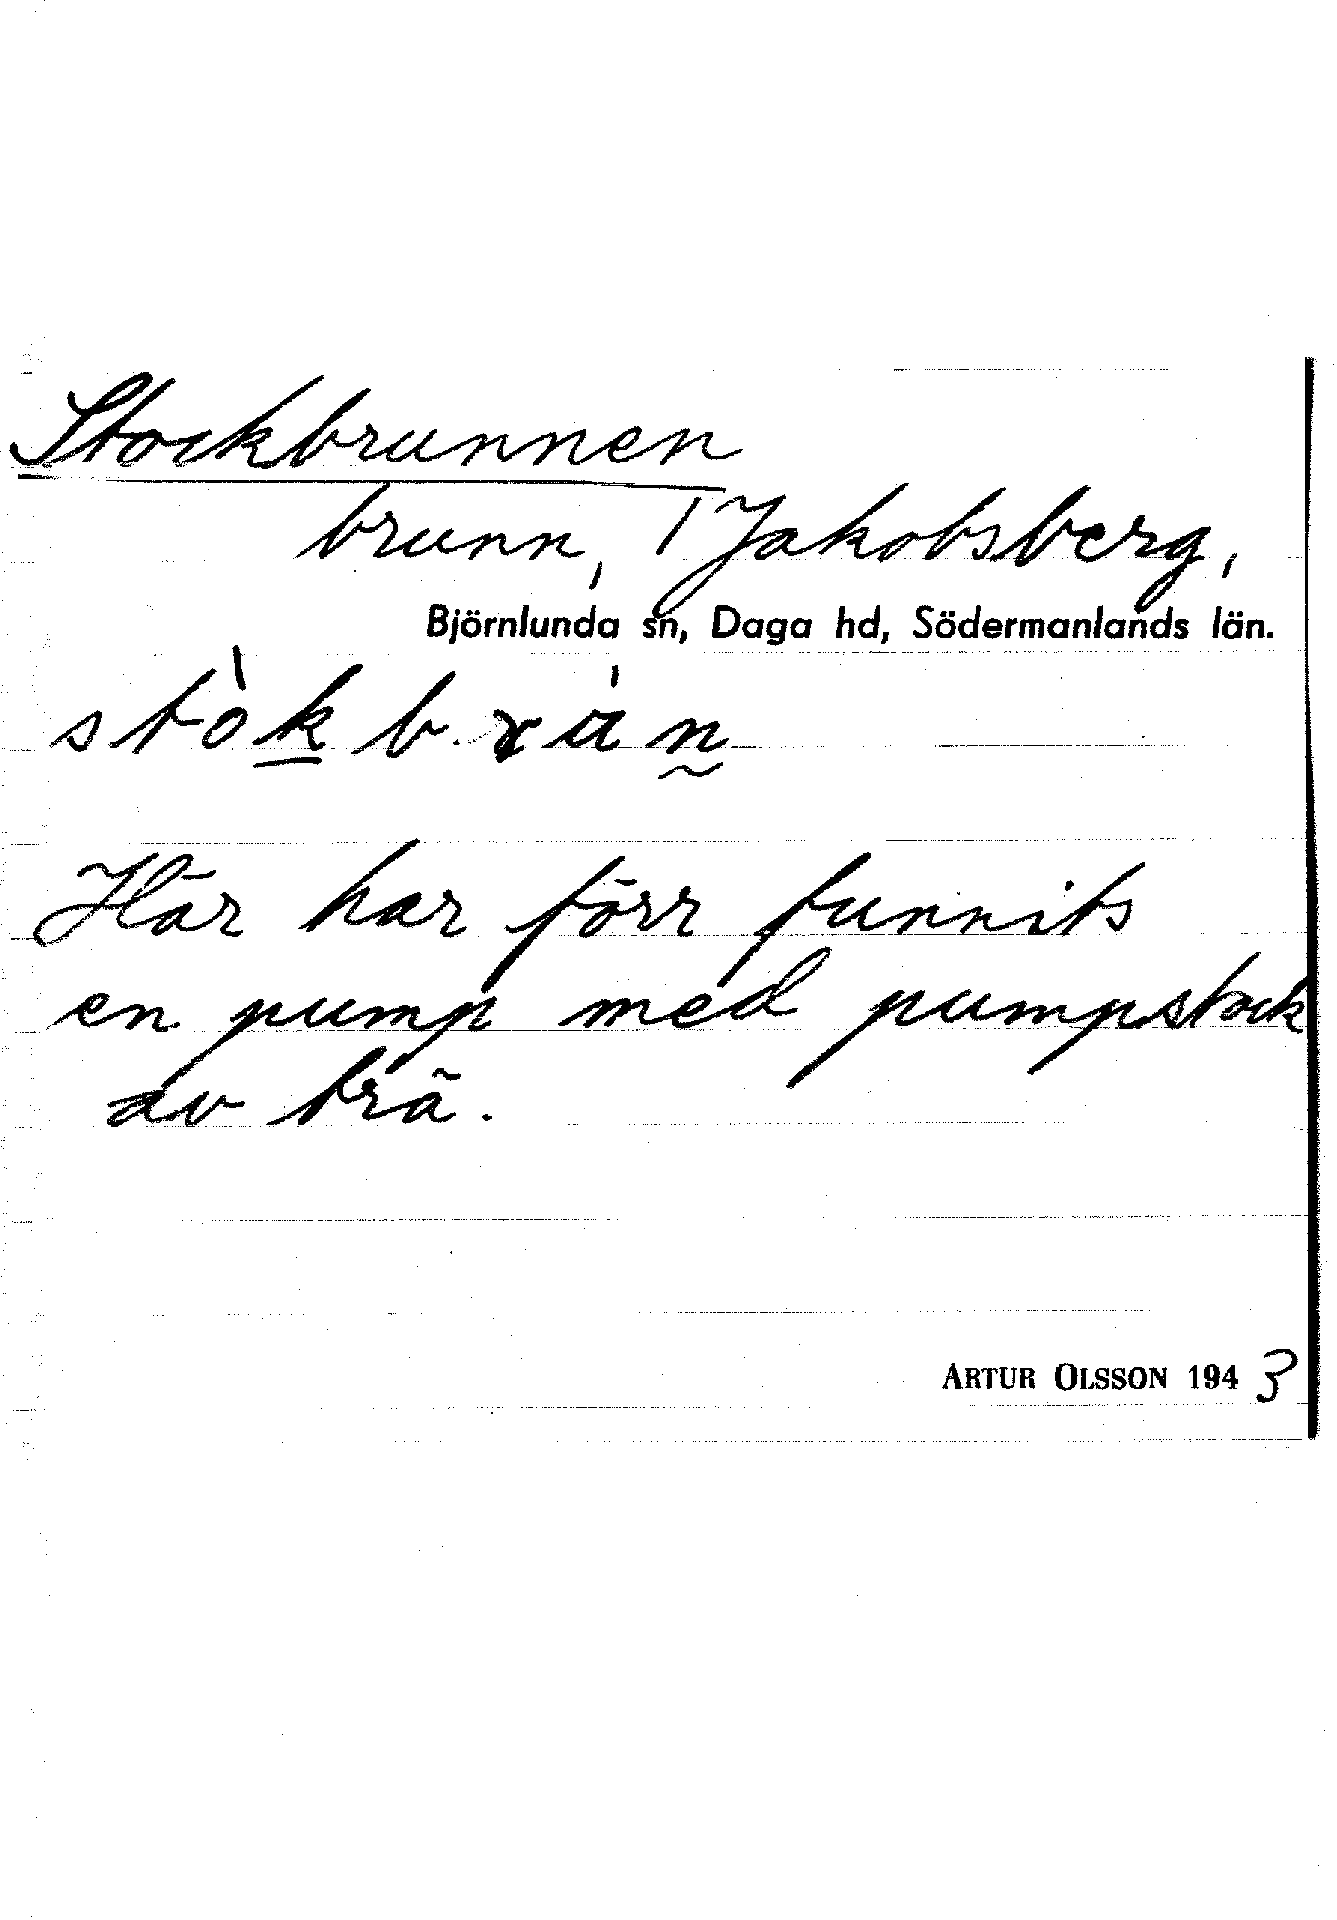 Stockbrunnen
brunn, 1 Jakobsberg,
Björnlunda sn, Daga hd, Södermanlands län.
stòkbrún
Här har förr funnits
en pump med pumpstock
av trä.
ARTUR OLSSON 1943